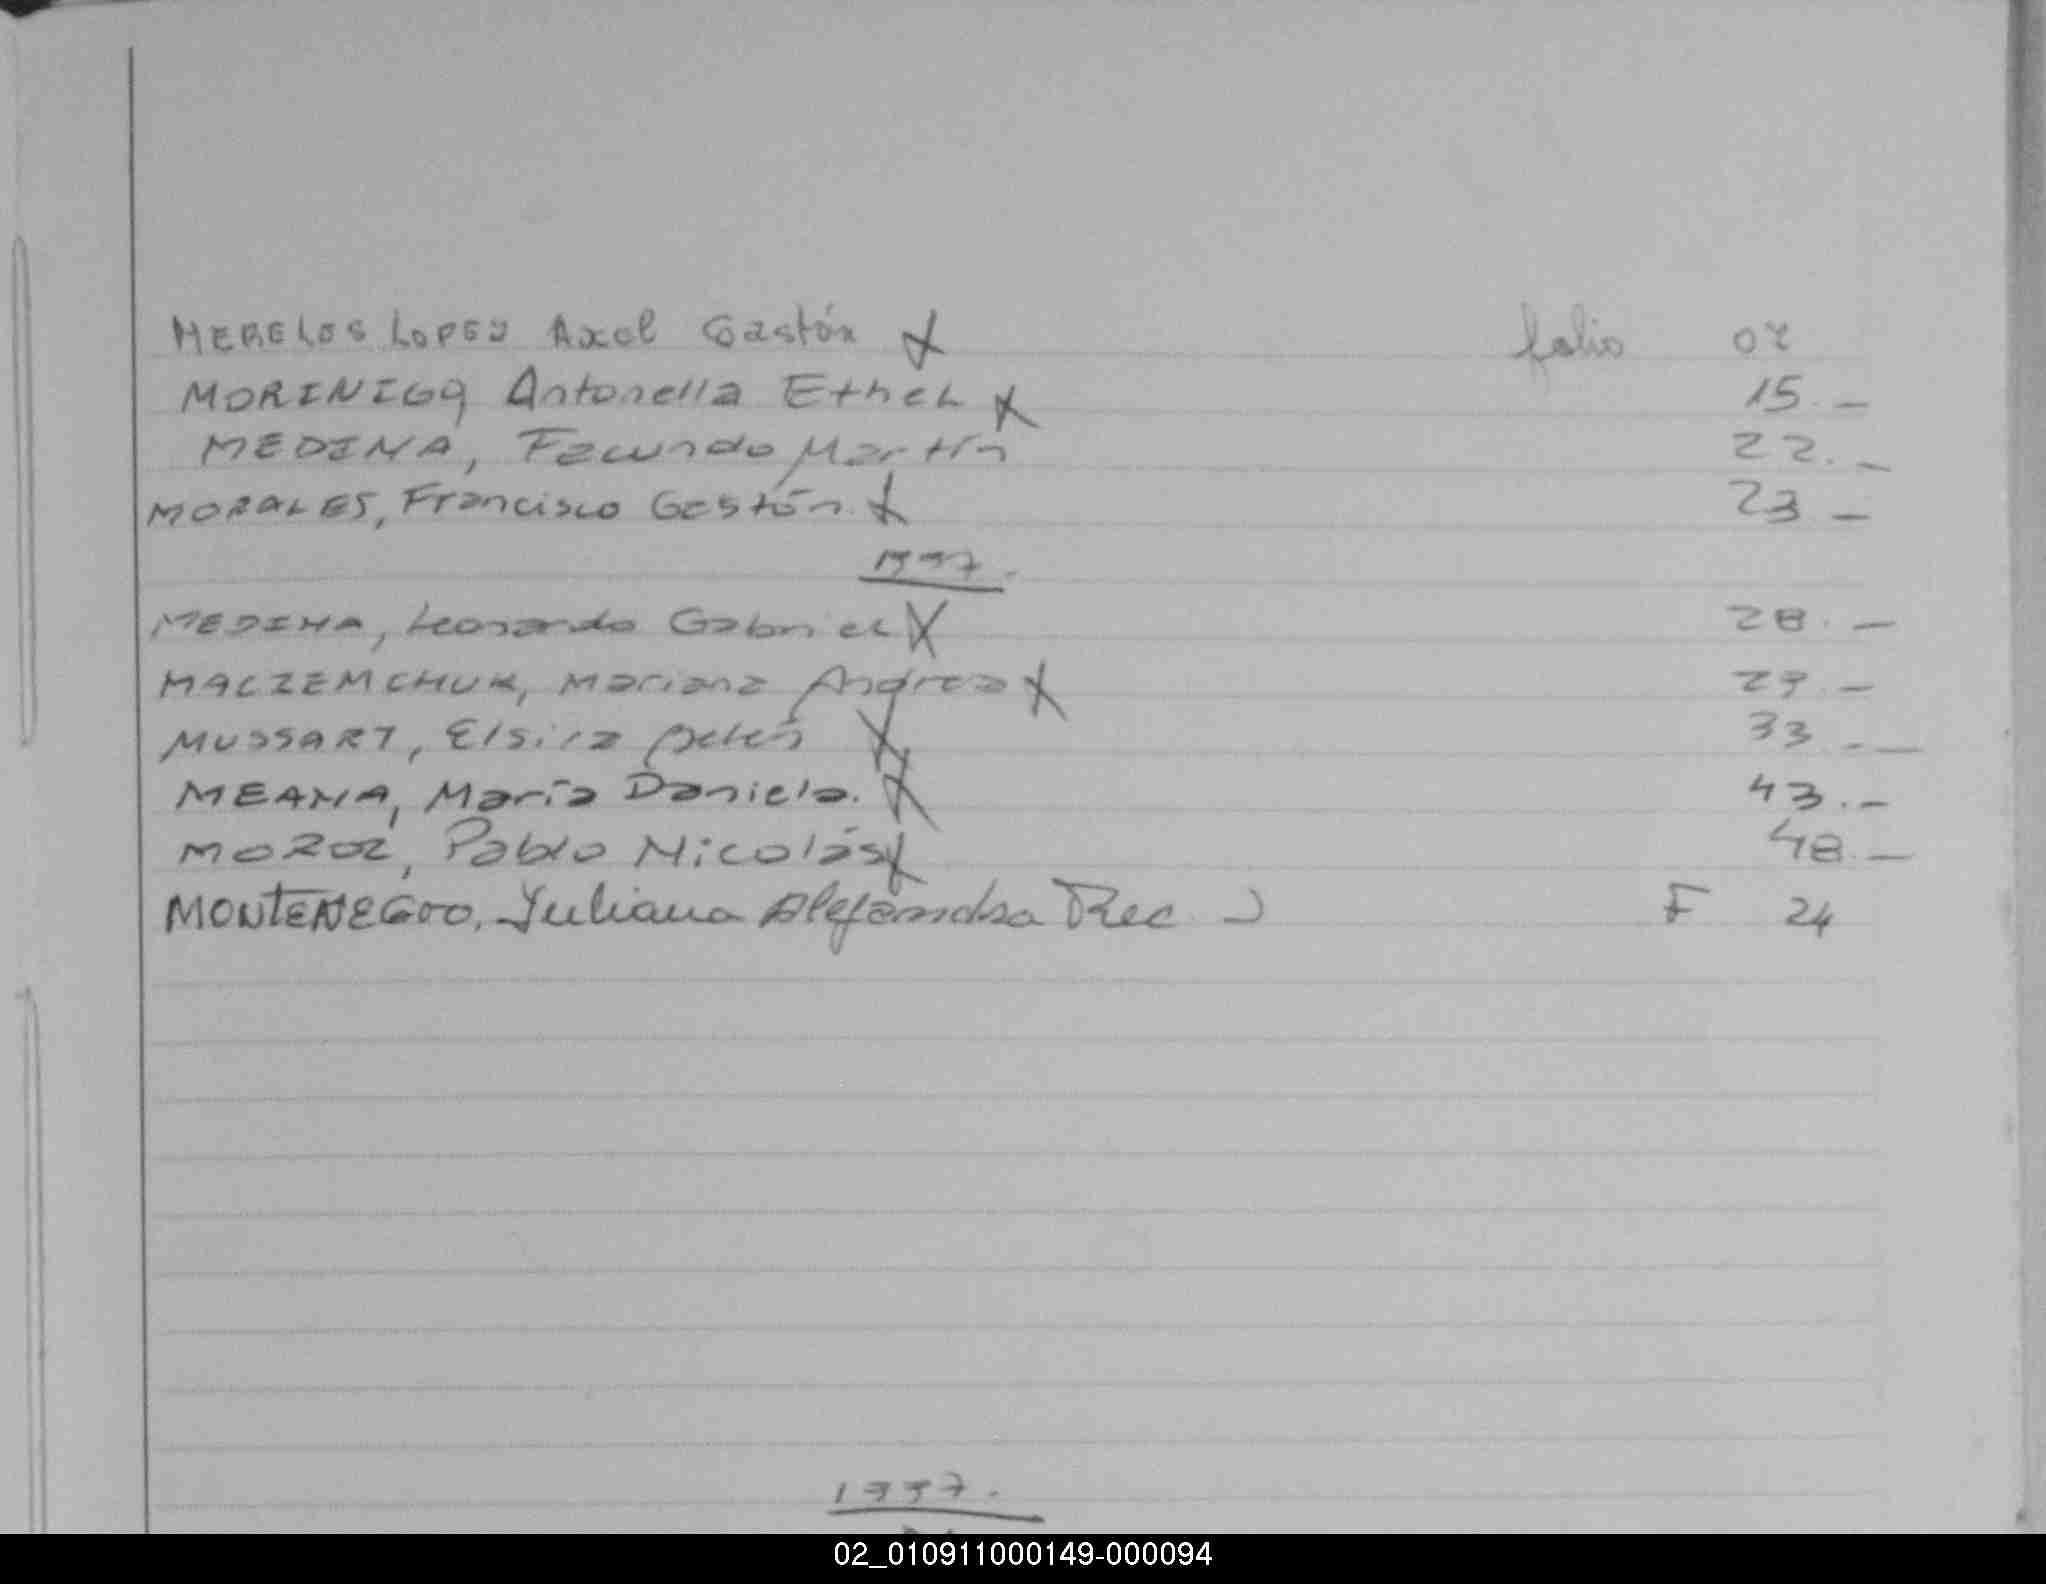 MERELES LOPEZ Axel Gastón X folio 07
MORINIGO, Antonella Ethel X 15.-
MEDINA, Facundo Martín 22.-
MORALES, Francisco Gastón. X 23-
1997.
MEDINA, Leonardo Gabriel X 28.-
MACZEMCHUK, Mariana Andrea X 29.-
MUSSART, Elsira Belén X 33.-
MEANA, María Daniela. X 43.-
MOROZ, Pablo Nicolás X 48.-
MONTENEGRO, Yuliana Alejandra Rec. F 24
1997.
02_010911000149-000094